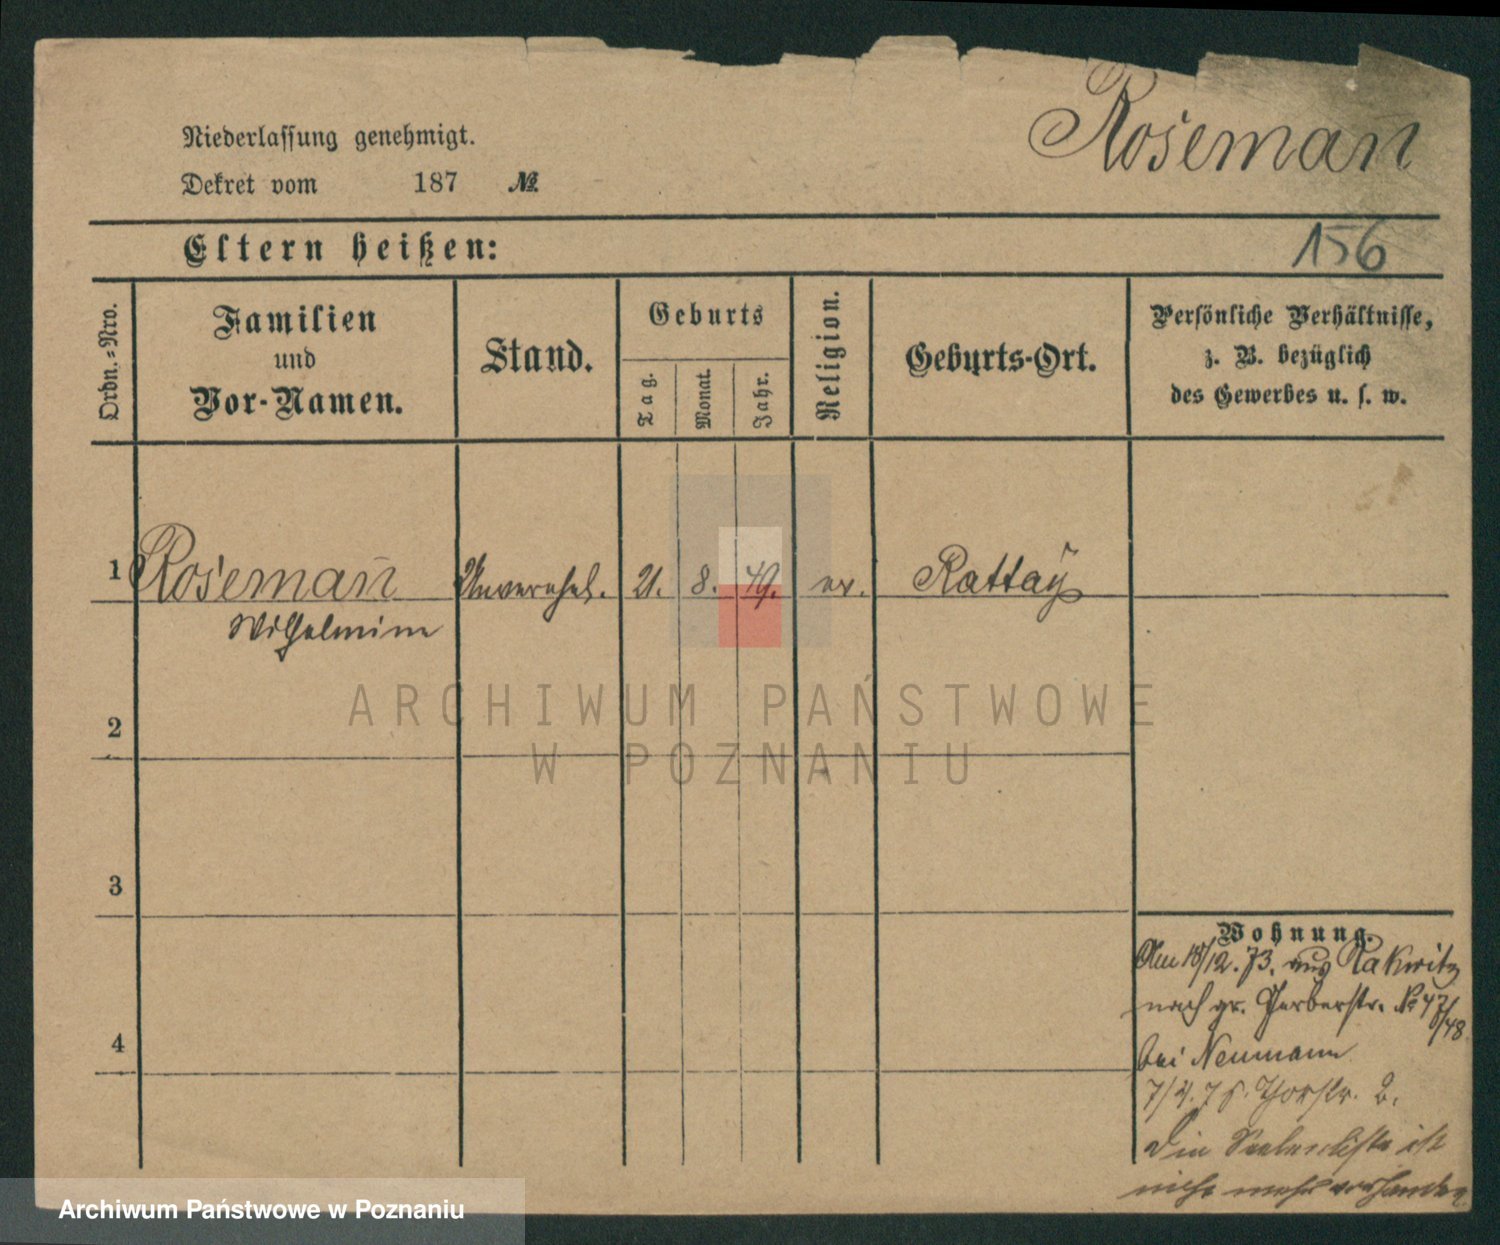 Roseman̄
Niederlassung genehmigt.
Dekret vom 187 №
Eltern heißen:
156
Ordn.-Nro.
Familien
und
Vor-Namen.
Stand.
Geburts
Tag.
Monat.
Jahr.
Religion.
Geburts-Ort.
Persönliche Verhältnisse,
z. B. bezüglich
des Gewerbes u. s. w.
1 Roseman̄ Unverehel. 21. 8. 49. ev. Rattaÿ
Wilhelmine
ARCHIWUM PAŃSTWOWE
W POZNANIU
2
3
4
Wohnung.
Am 18/12.73. aus Rakwitz
nach gr. Gerberstr. № 47/48
bei Neumann
Thorstr. 2.
Die Seelenliste ist
nicht mehr vorhanden
Archiwum Państwowe w Poznaniu